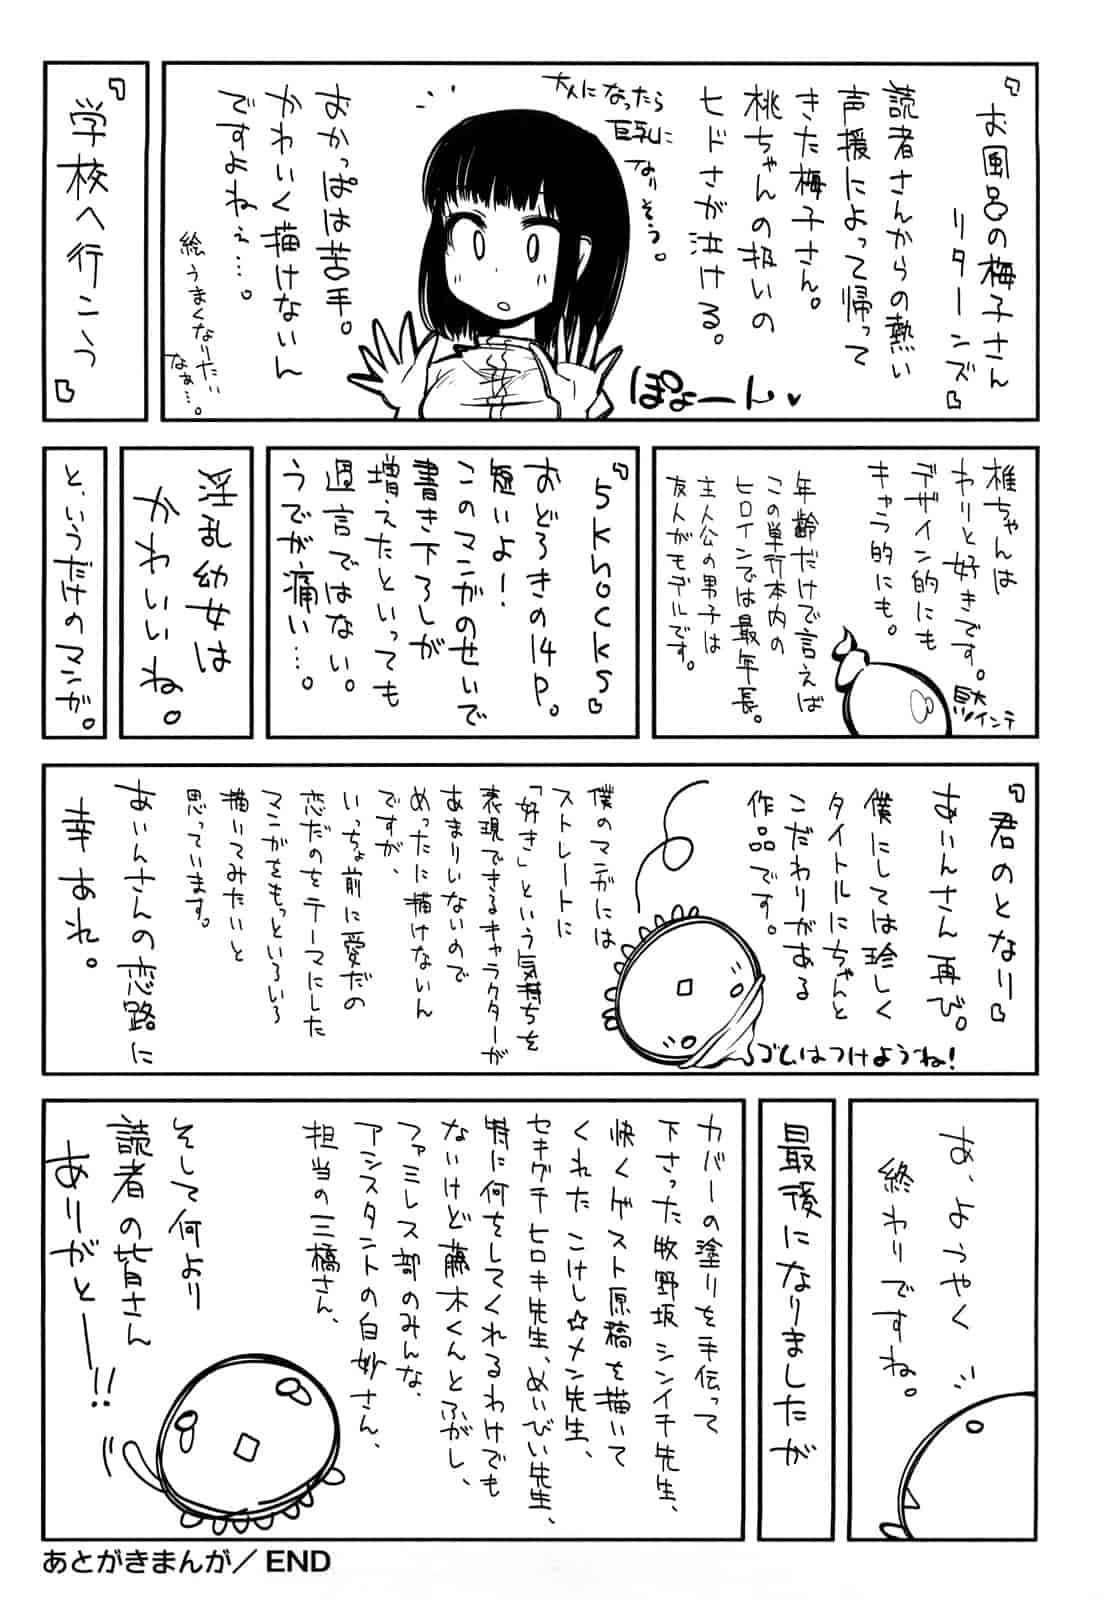 『お風呂の梅子さん
リターンズ』
読者さんからの熱い
声援によって帰って
きた梅子さん。
桃ちゃんの扱いの
ヒドさが泣ける。
ぽよーん♥
おかっぱは苦手。
かわいく描けないん
ですよねぇ…。
絵うまくなりたい
なぁ…。
『学校へ行こう』
椎ちゃんは
わりと好きです。
デザイン的にも
キャラ的にも。
年齢だけで言えば
この単行本内の
ヒロインでは最年長。
主人公の男子は
友人がモデルです。
『5knocks』
おどろきの14p。
短いよ!
このマンガのせいで
書き下ろしが
増えたといっても
過言ではない。
うでが痛い…。
と、いうだけのマンガ。
『君のとなり』
あいんさん再び。
僕にしては珍しく
タイトルにちゃんと
こだわりがある
作品です。
ゴムはつけようね!
僕のマンガには
ストレートに
「好き」という気持ちを
表現できるキャラクターが
あまりいないので
めったに描けないん
ですが、
いっちょ前に愛だの
恋だのをテーマにした
マンガをもっといろいろ
描いてみたいと
思っています。
あいんさんの恋路に
幸あれ。
あ、ようやく
終わりですね。
最後になりましたが
カバーの塗りを手伝って
下さった牧野坂シンイチ先生、
快くゲスト原稿を描いて
くれたこけし☆メン先生、
セキグチヒロキ先生、めいびい先生、
特に何をしてくれるわけでも
ないけど藤木くんとふがし、
ファミレス部のみんな、
アシスタントの白妙さん、
担当の三橋さん、
そして何より
読者の皆さん
ありがとー!!
あとがきまんが/END